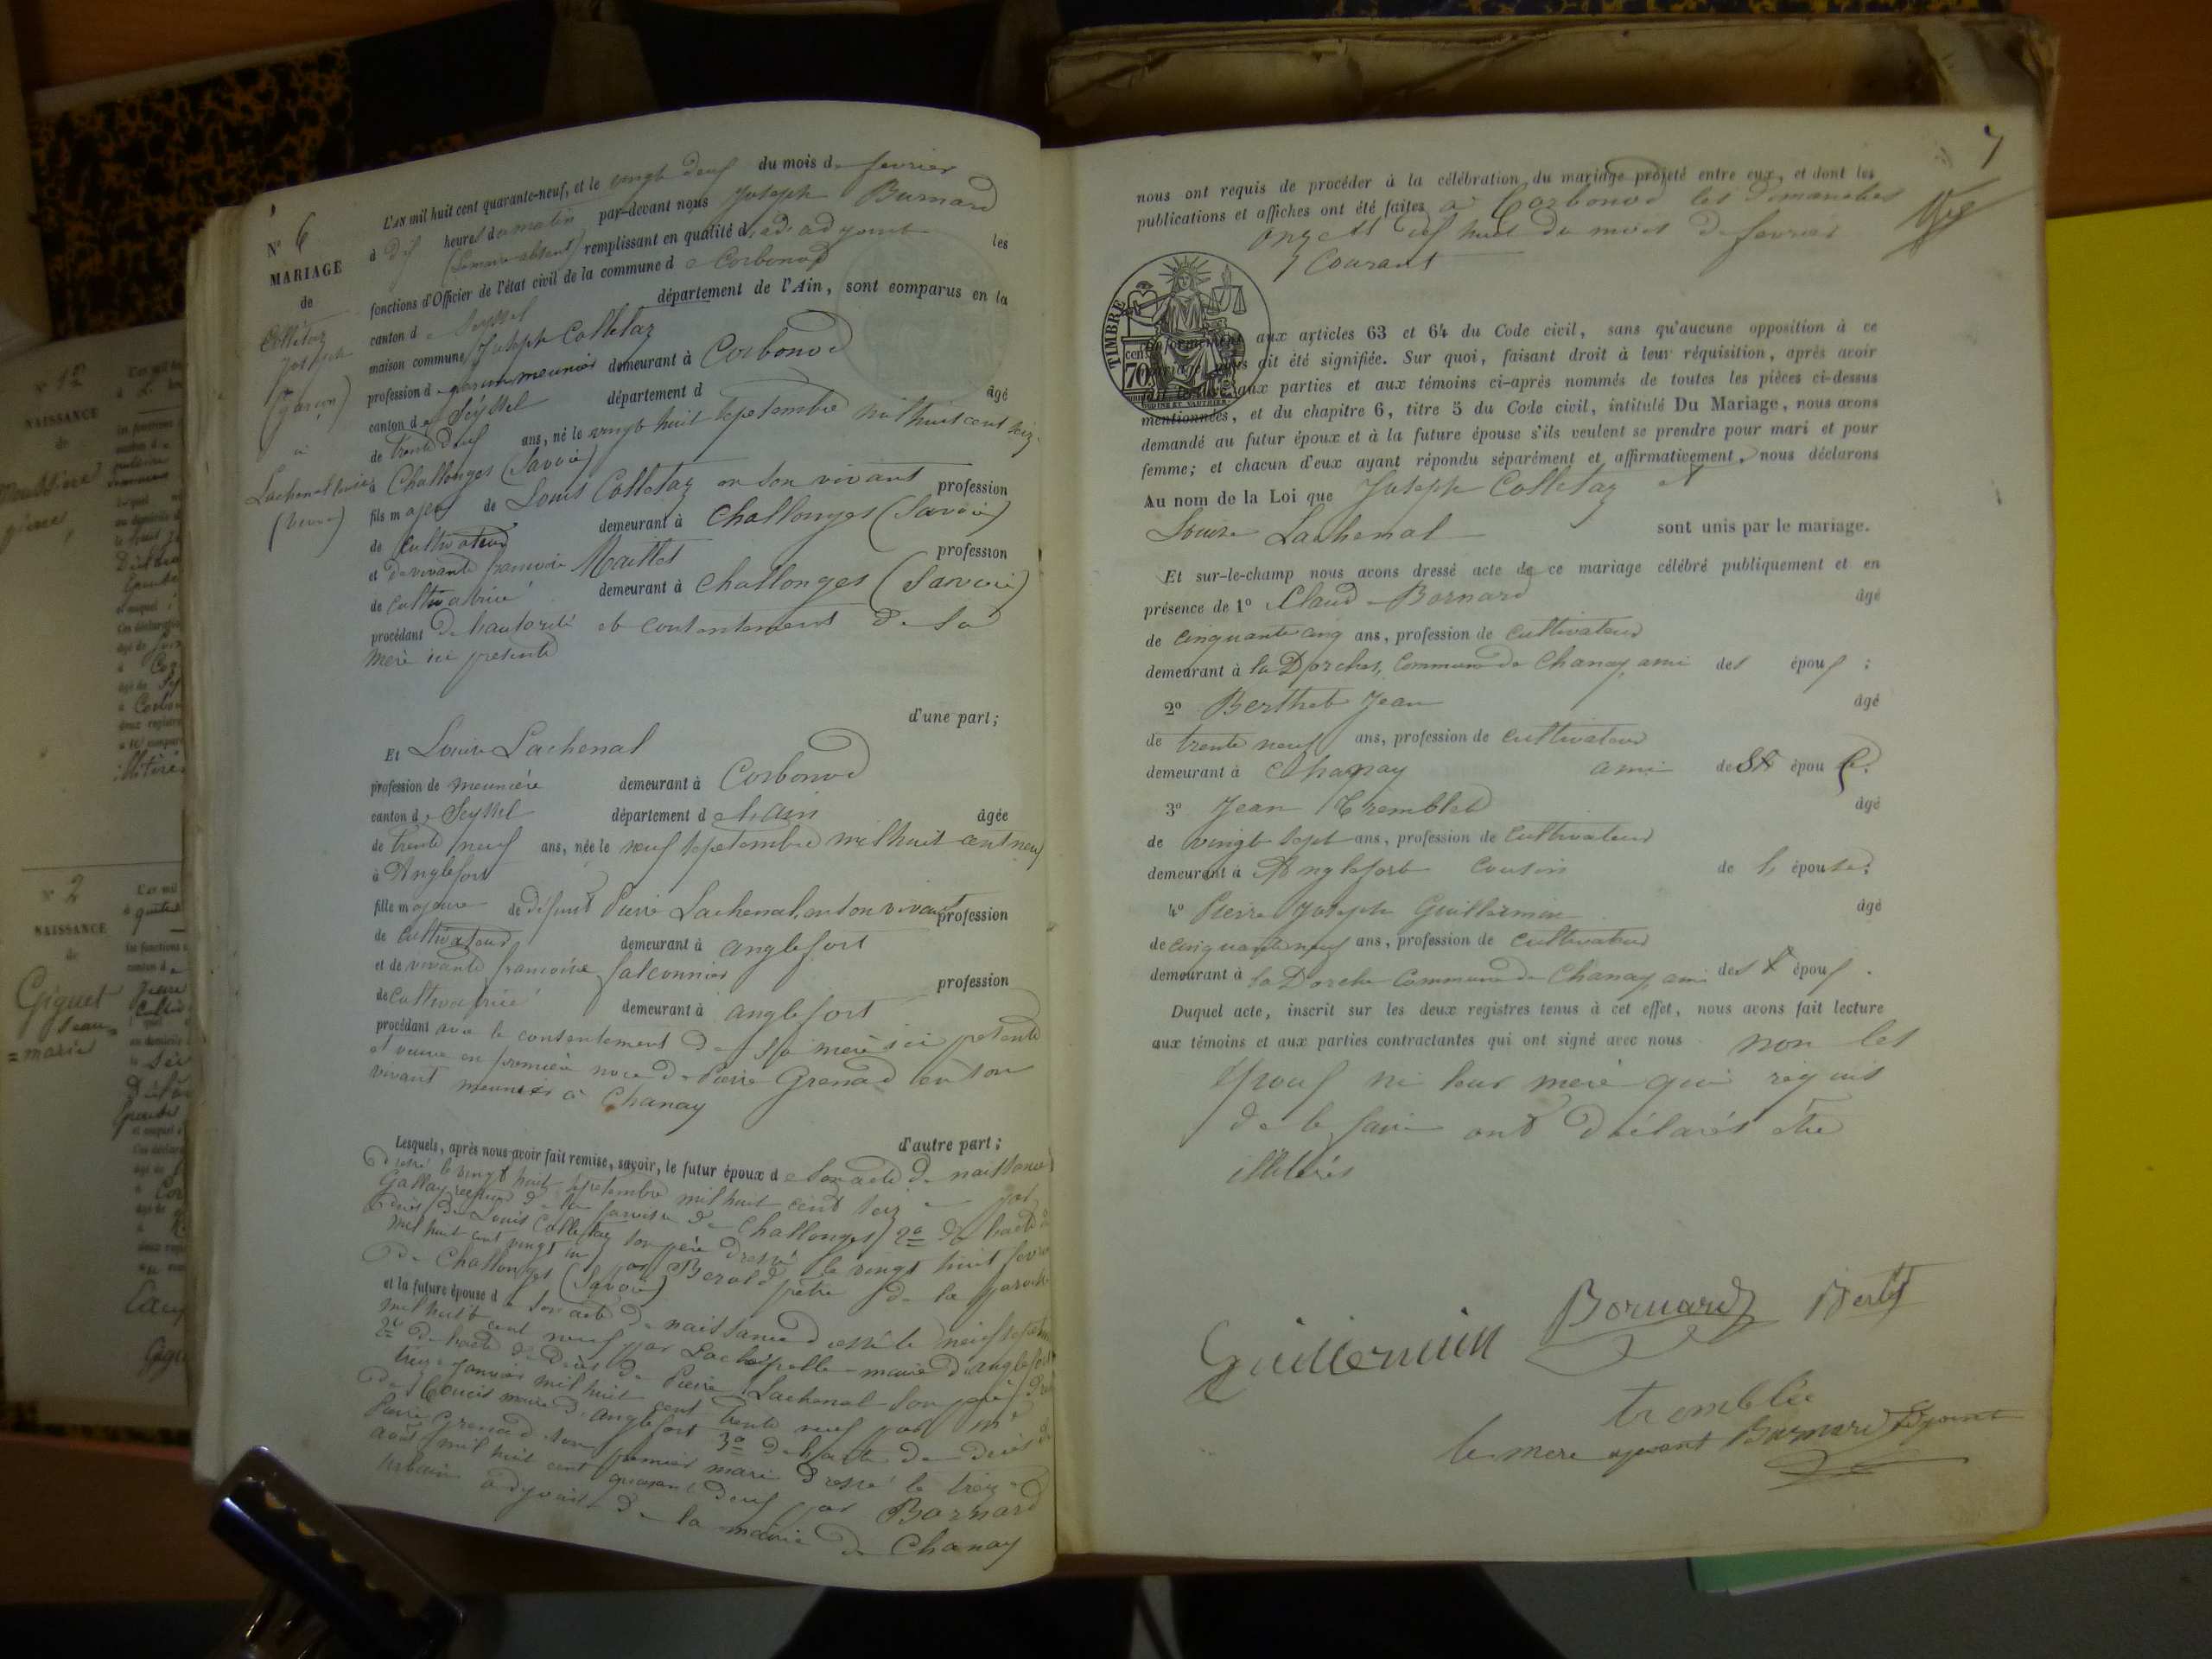 N° 6
MARIAGE
de
Colletaz
Joseph
(garçon)
à
Lachenal Louise
(veuve)
L'AN mil huit cent quarante-neuf, et le vingt deux du mois de fevrier
à dix heures du matin par-devant nous Joseph Burnard
(le maire absent) remplissant en qualité d'adjoint les
fonctions d'Officier de l'état civil de la commune de Corbonod
canton de Seyssel département de l'Ain, sont comparus en la
maison commune Joseph Colletaz
profession de garcon meunier demeurant à Corbonod
canton de Seyssel département d âgé
de trente deux ans, né le vingt huit septembre mil huit cent seize
à Challonges (Savoie)
fils majeur de Louis Colletaz en son vivant profession
de cultivateur demeurant à Challonges (Savoie)
et de vivante francoise Maillet profession
de cultivatrice demeurant à Challonges (Savoie)
procédant de l'autorité et consentement de sa
mere ici presente
d'une part;
Et Louise Lachenal
profession de meuniére demeurant à Corbonod
canton de Seyssel département de l'ain âgée
de trente neuf ans, née le neuf septembre mil huit cent neuf
à Anglefort
fille majeure de défunt Pierre Lachenal en son vivant profession
de cultivateur demeurant à anglefort
et de vivante francoise falconnier profession
de cultivatrice demeurant à anglefort
procédant avec le consentement de sa mere ici presente
et veuve en premiere noce de Pierre Grenad en son
vivant meunier à Chanay
d'autre part;
Lesquels, après nous avoir fait remise, savoir, le futur époux de son acte de naissance
dressé le vingt huit septembre mil huit cent seize par
Gallay recteur de la paroisse de Challonges 2° de l'acte de
deces de Louis Colletaz son pere dressé le vingt huit fevrier
mil huit cent vingt un par Berold prêtre de la paroisse
de Challonges (Savoie)
et la future épouse de son acte de naissance dressé le neuf septembre
mil huit cent neuf par Lachapelle maire d'anglefort
2° de l'acte de deces de Pierre Lachenal son pere dressé
treize janvier mil huit cent trente neuf par Mr
de maire d'anglefort 3° de l'acte de deces de
Pierre Grenad son premier mari dressé le treize
août mil huit cent quarante deux par Barnard
Urbain adjoint de la mairie de Chanay
7
nous ont requis de procéder à la célébration du mariage projeté entre eux, et dont les
publications et affiches ont été faites à Corbonod les dimanches
onze et dix huit du mois de fevrier
courant
TIMBRE
70
conformément aux articles 63 et 64 du Code civil, sans qu'aucune opposition à ce
mariage nous ait été signifiée. Sur quoi, faisant droit à leur réquisition, après avoir
aux parties et aux témoins ci-après nommés de toutes les pièces ci-dessus
mentionnées, et du chapitre 6, titre 5 du Code civil, intitulé Du Mariage, nous avons
demandé au futur époux et à la future épouse s'ils veulent se prendre pour mari et pour
femme; et chacun d'eux ayant répondu séparément et affirmativement, nous déclarons
Au nom de la Loi que Joseph Colletaz et
Louise Lachenal sont unis par le mariage.
Et sur-le-champ nous avons dressé acte de ce mariage célébré publiquement et en
présence de 1° Claude Bornard âgé
de cinquante cinq ans, profession de cultivateur
demeurant à la Dorches, Commune de Chanay, ami des époux ;
2° Berthet Jean âgé
de trente neuf ans, profession de cultivateur
demeurant à Chanay ami des épou
3° Jean Tremblet âgé
de vingt sept ans, profession de cultivateur
demeurant à Anglefort cousin de l'épouse;
4° Pierre Joseph Guillermin âgé
de cinquante neuf ans, profession de cultivateur
demeurant à la Dorche Commune de Chanay ami des époux.
Duquel acte, inscrit sur les deux registres tenus à cet effet, nous avons fait lecture
aux témoins et aux parties contractantes qui ont signé avec nous non les
epoux ni leur mere qui requis
de le faire ont déclarés être
illetrés
Guillermin Bornard
tremblée
N° 2
NAISSANCE
de
Giguet
Jean
=marie
NAISSANCE